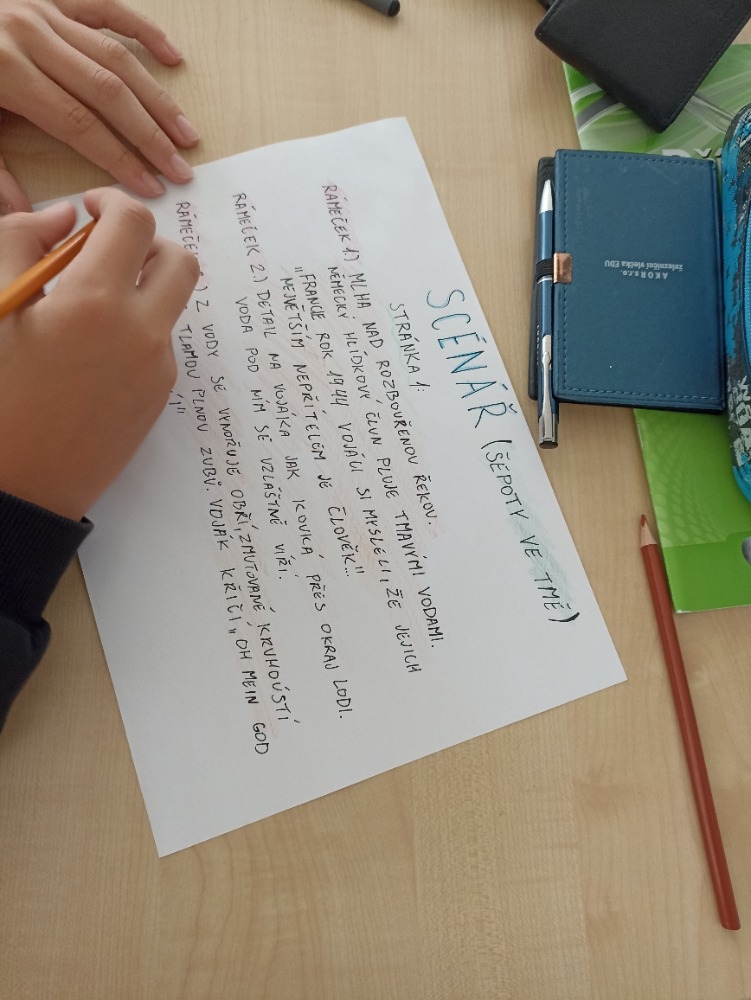 SCÉNÁŘ (ŠEPOTY VE TMĚ)
STRÁNKA 1:
RÁMEČEK 1.) MLHA NAD ROZBOUŘENOU ŘEKOU.
NĚMECKÝ HLÍDKOVÝ ČLUN PLUJE TMAVÝMI VODAMI.
„FRANCIE ROK 1944 VOJÁCI SI MYSLELI, ŽE JEJICH
NEJVĚTŠÍM NEPŘÍTELEM JE ČLOVĚK..."
RÁMEČEK 2.) DETAIL NA VOJÁKA JAK KOUKÁ PŘES OKRAJ LODI.
VODA POD NÍM SE VZLÁŠTNĚ VÍŘÍ.
RÁMEČEK Z VODY SE VYNOŘUJE OBŘÍ, ZMUTOVANÉ KRUHOÚSTÍ
TLAMOU PLNOU ZUBŮ. VOJÁK KŘIČÍ „OH MEIN GOD
AKOR s.r.o.
železniční vlečka EDU